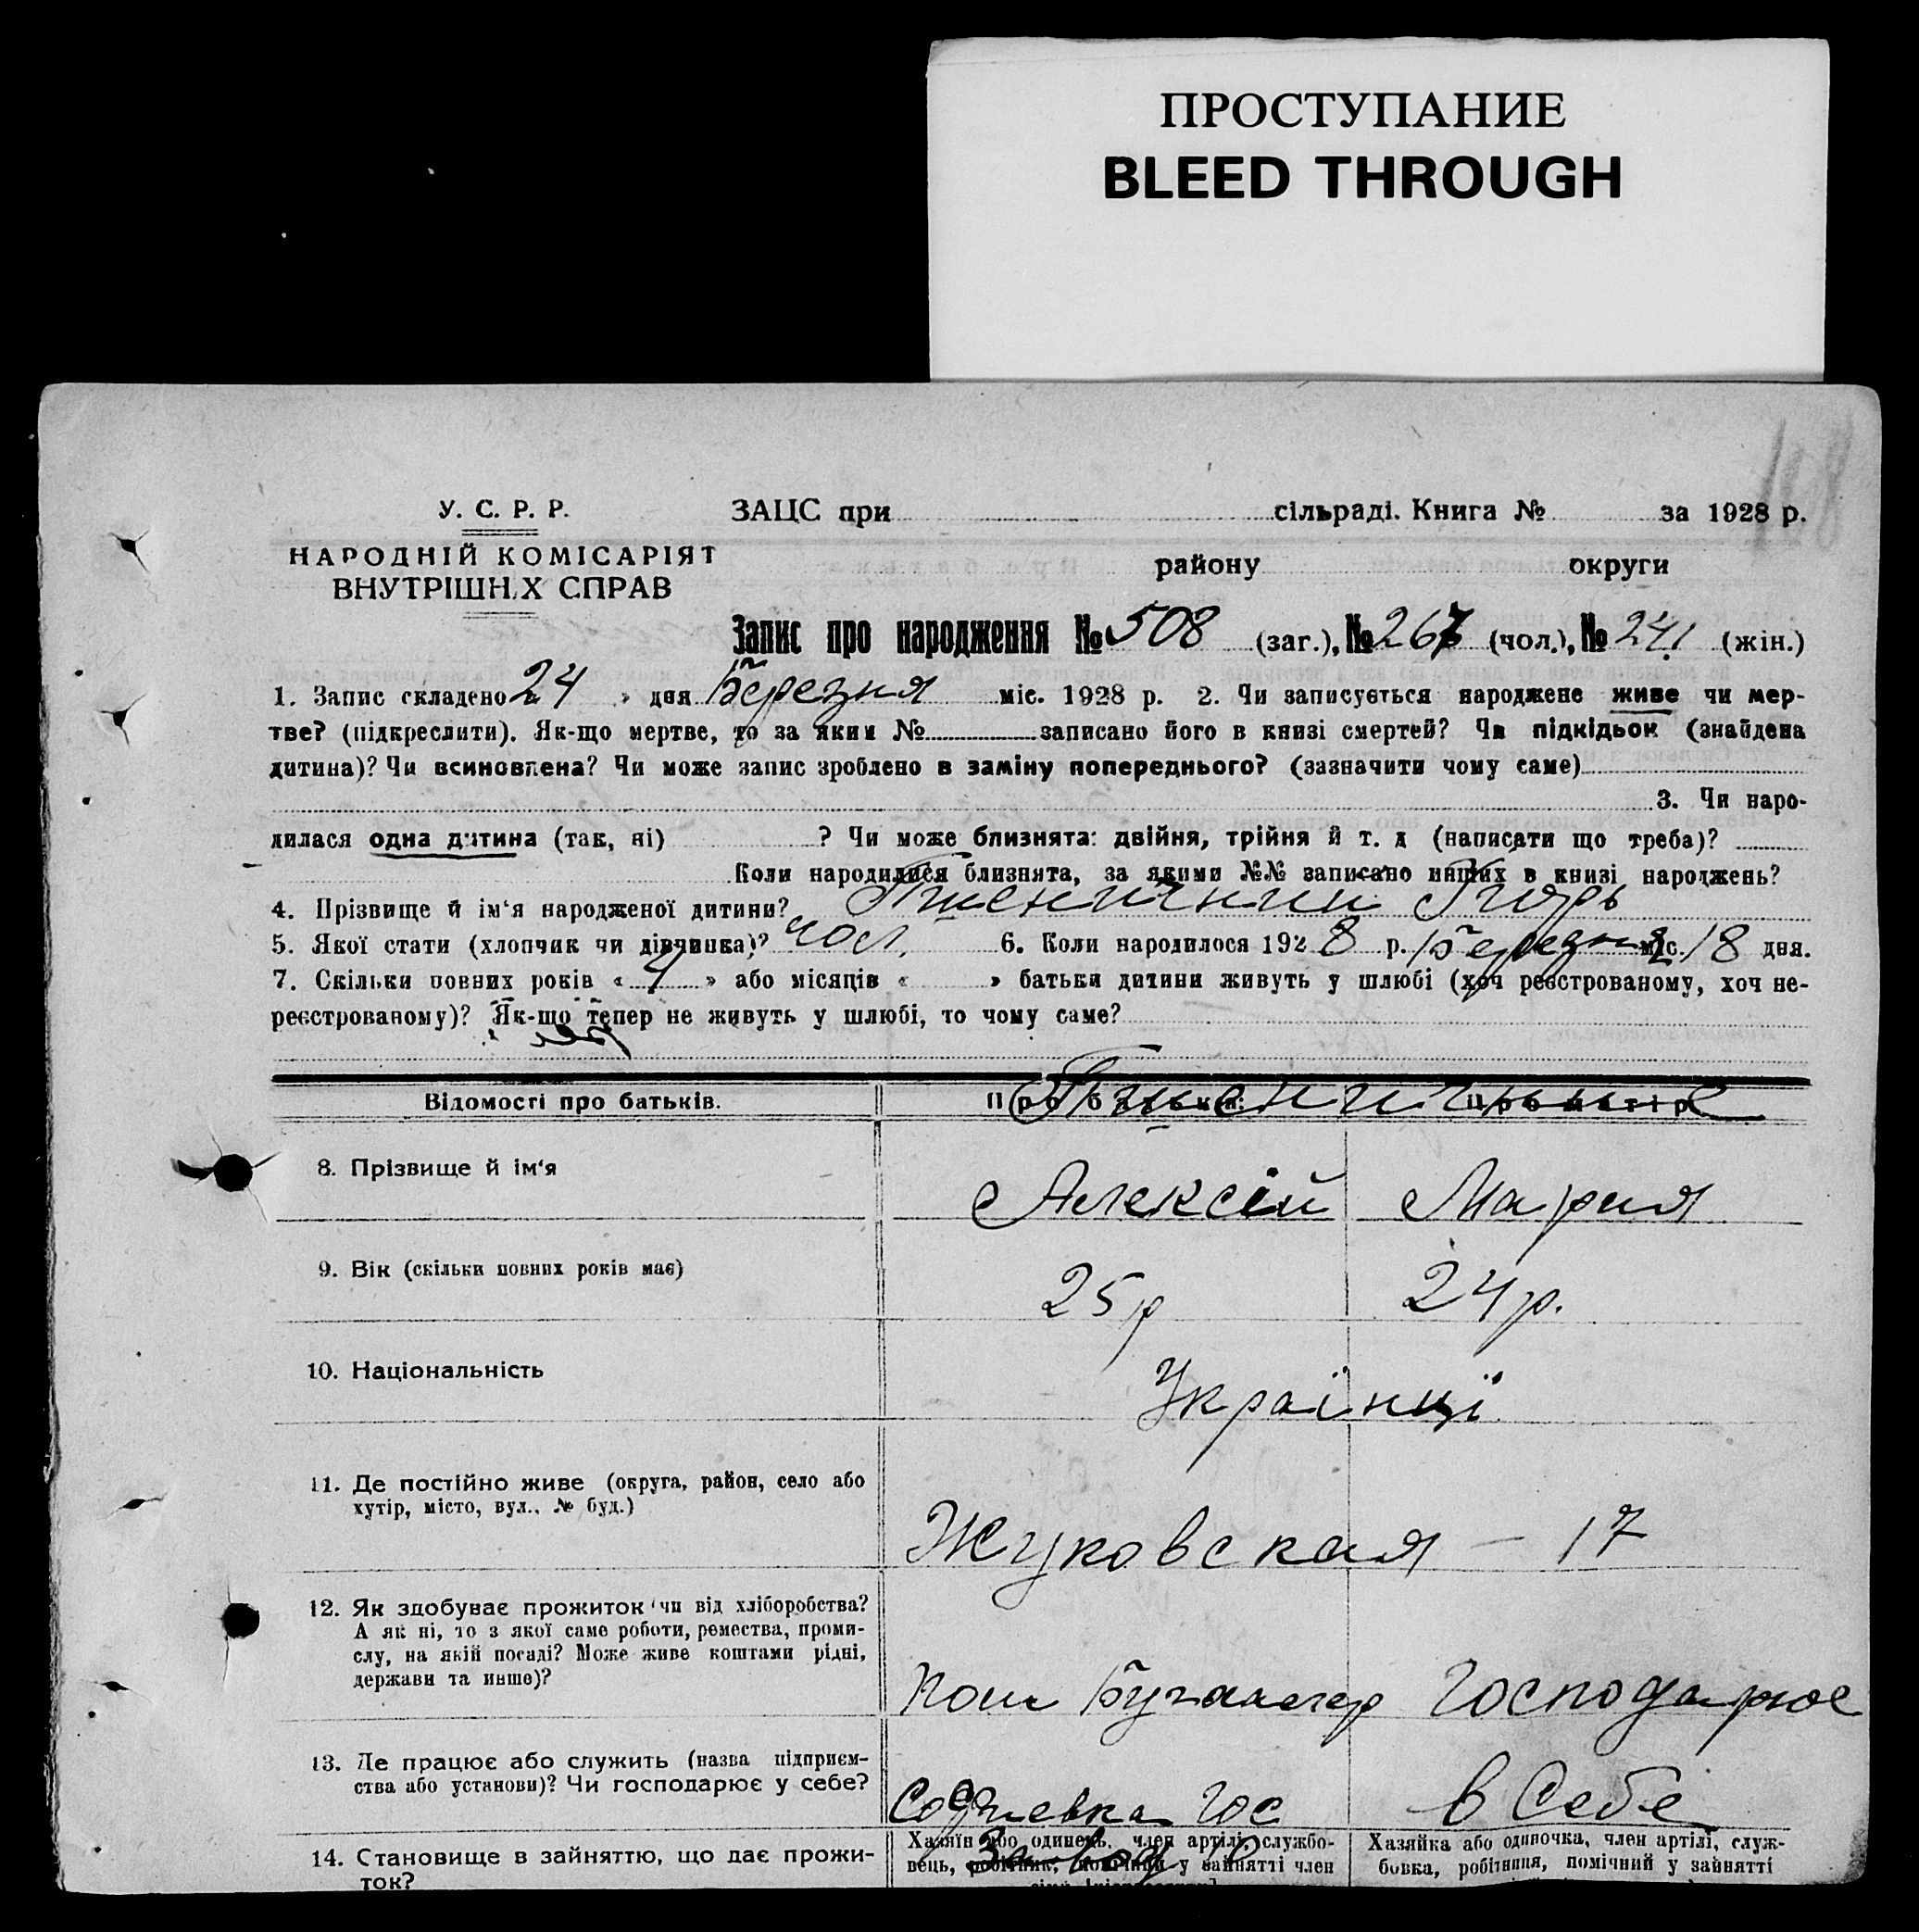 ПРОСТУПАНИЕ
BLEED THROUGH
У. С. Р. Р.
НАРОДНІЙ КОМІСАРІЯТ
ВНУТРІШНіХ СПРАВ
ЗАЦС при сільраді. Книга № за 1928 р.
району округи
Запис про народження № 508 (заг.), № 267 (чол.), № 241 (жін.)
1. Запис складено 24 » дня Березня міс. 1928 р. 2. Чи записується народжене живе чи мер-
тве? (підкреслити). Як-що мертве, то за яким № записано його в книзі смертей? Чи підкідьок (знайдена
дитина)? Чи всиновлена? Чи може запис зроблено в заміну попереднього? (зазначити чому саме)
3. Чи наро-
дилася одна дитина (так, ні) ? Чи може близнята: двійня, трійня й т. д (написати що треба)?
Коли народилися близнята, за якими №№ записано инших в книзі народжень?
4. Прізвище й ім‘я народженої дитини? Пшеничний Ігорь
5. Якої стати (хлопчик чи дівчинка)? чол. 6. Коли народилося 1928 р. Березня міс. 18 дня.
7. Скільки повних років « 4 » або місяців « » батьки дитини живуть у шлюбі (хоч реєстрованому, хоч не-
реєстрованому)? Як-що тепер не живуть у шлюбі, то чому саме?
Відомості про батьків. Про батька: Про матір
Пшеничные
8. Прізвище й ім‘я Алексій Мария
9. Вік (скільки повних років має) 25 р 24 р.
10. Національність Українці
11. Де постійно живе (округа, район, село або
хутір, місто, вул., № буд.)
Жуковская – 17
12. Як здобуває прожиток (чи від хліборобства?
А як ні, то з якої саме роботи, ремества, проми-
слу, на якій посаді? Може живе коштами рідні,
держави та инше)?
Пом Бугалтер Господарює
13. Де працює або служить (назва підприєм-
ства або установи)? Чи господарює у себе?
Гос в Себе
Завод
14. Становище в зайняттю, що дає прожи-
ток?
Хазяїн або одинець, член артілі, службо-
вець, робітник, помічний у зайнятті член
Хазяйка або одиночка, член артілі, служ-
бовка, робітниця, помічний у зайнятті